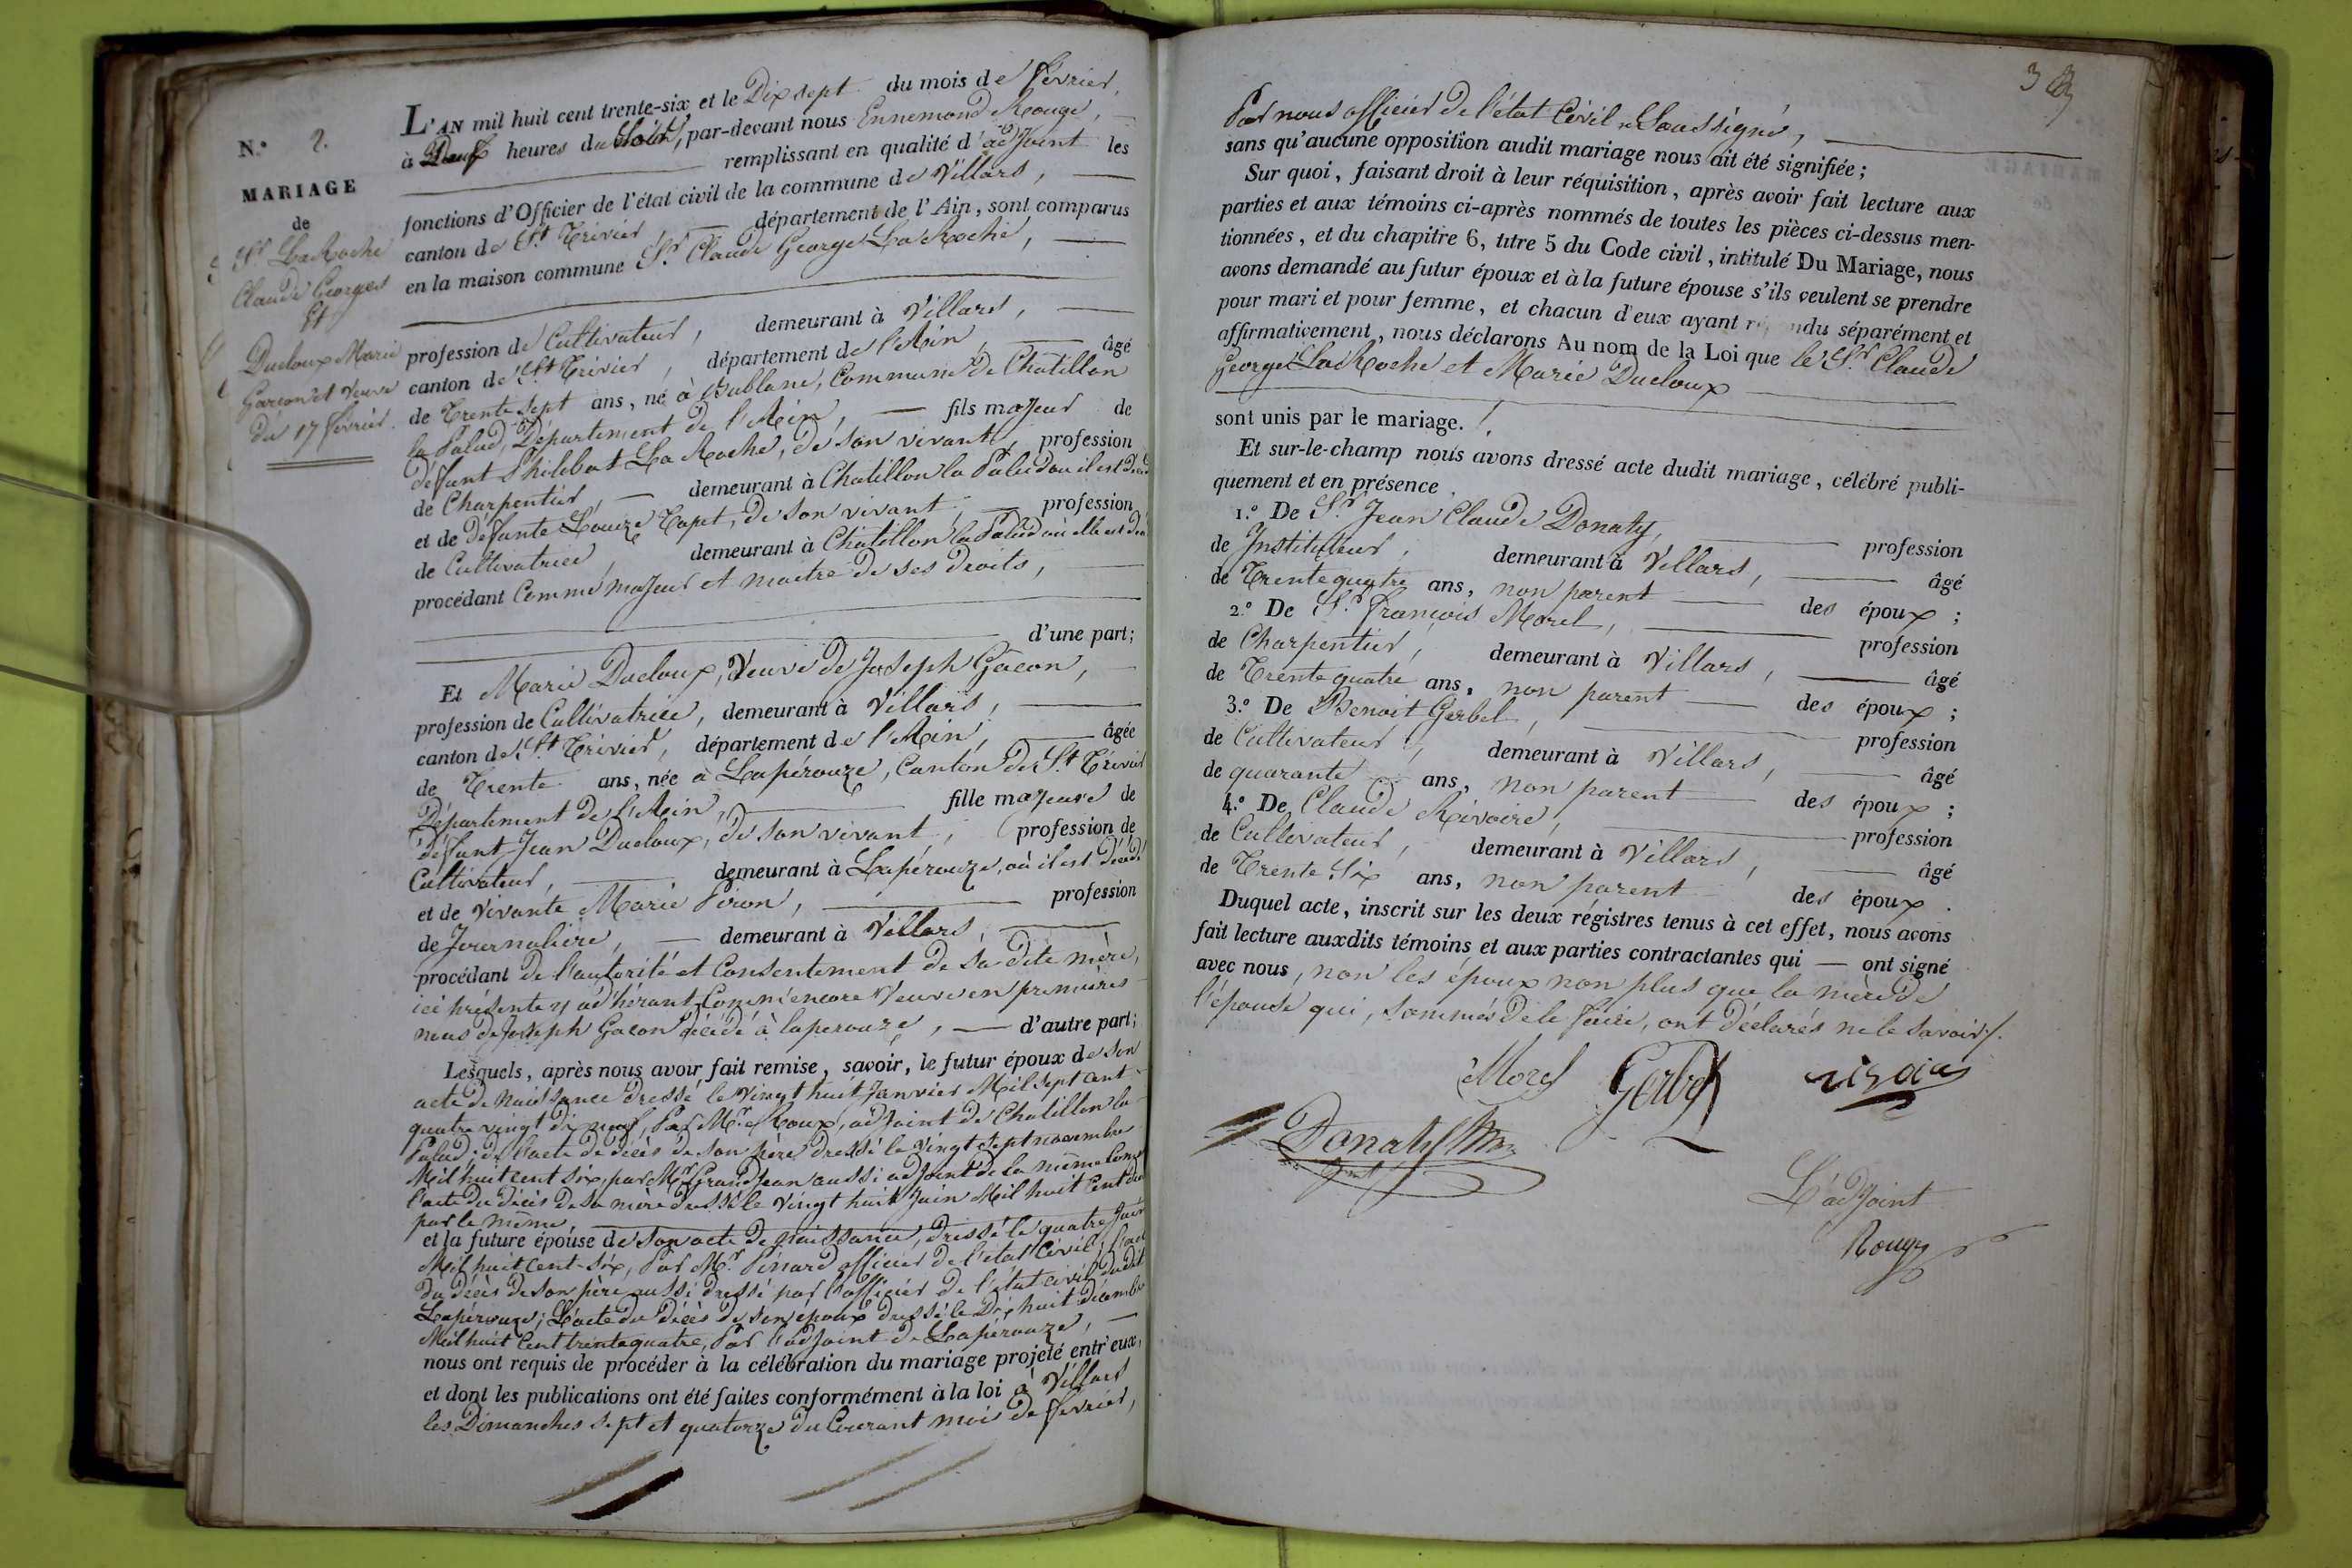 N.º 2.
MARIAGE
de
Sr LaRoche
Claude Georges
Et
Ducloux Marie
Garçon et Veuve
du 17 février.
L'AN mil huit cent trente-six et le Dix sept du mois de février,
à Deux heures du Soir, par-devant nous Ennemond Rouge,
remplissant en qualité d'adjoint les
fonctions d'Officier de l'état civil de la commune de Villars,
canton de St. Trivier département de l'Ain, sont comparus
en la maison commune Sr. Claude George LaRoche,
profession de Cultivateur, demeurant à Villars,
canton de St Trivier, département de l'Ain, âgé
de Trente sept ans, né à Bublane, Commune de Chatillon
la Palud, Département de l'Ain, fils majeur de
défunt Philibert La Roche, de son vivant, profession
de Charpentier, demeurant à Chatillon la Palud ou il est
et de défunte Louize Tapet, de son vivant, profession
de Cultivatrice, demeurant à Chatillon la Palud où elle est
procédant Comme majeur et maitre de ses droits,
d'une part;
Et Marie Ducloux, Veuve de Joseph Gâcon,
profession de Cultivatrice, demeurant à Villars,
canton de St. Trivier, département de l'Ain, âgée
de Trente ans, née à Lapérouze, Canton de St. Trivier
Département de l'Ain, fille majeure de
défunt Jean Ducloux, de son vivant, profession de
Cultivateur, demeurant à Lapérouze, où il est décédé
et de vivante Marie Piron, profession
de Journalière, demeurant à Villars,
procédant de l'autorité et Consentement de sa dite mère,
ici présente y adhérant, Comm'encore Veuve en premières
noces de Joseph Gacon décédé à laperouze, d'autre part;
Lesquels, après nous avoir fait remise, savoir, le futur époux de son
acte de Naissance dressé le vingt huit Janvier Mil sept cent
quatre vingt dix neuf, Par Mr. Roux, adjoint de Chatillon la
Palud; de l'acte de décès de son père dressé le vingt sept novembre
Mil huit cent six, par Mr. Grandjean aussi adjoint de la même
l'acte du décès de sa mère dressé le vingt huit Juin Mil huit Cent
par le même,
et la future épouse de son acte de naissance, dressé le quatre Juin
Mil huit cent-six, Par Mr. Pinard officier de l'état Civil;
du décès de son père aussi dressé par l'officier de l'état civil dudit
Lapérouze; L'acte du décès de son époux dressé le Dix huit décembre
Mil huit Cent trente quatre, Par l'adjoint de Lapérouze,
nous ont requis de procéder à la célébration du mariage projeté entr'eux,
et dont les publications ont été faites conformément à la loi à Villars
les Dimanches sept et quatorze du Courant mois de février,
Par nous officier de l'état Civil Soussigné,
sans qu'aucune opposition audit mariage nous ait été signifiée;
Sur quoi, faisant droit à leur réquisition, après avoir fait lecture aux
parties et aux témoins ci-après nommés de toutes les pièces ci-dessus men-
tionnées, et du chapitre 6, titre 5 du Code civil, intitulé Du Mariage, nous
avons demandé au futur époux et à la future épouse s'ils veulent se prendre
pour mari et pour femme, et chacun d'eux ayant répondu séparément et
affirmativement, nous déclarons Au nom de la Loi que le Sr. Claude
George LaRoche et Marie Ducloux
sont unis par le mariage.
Et sur-le-champ nous avons dressé acte dudit mariage, célébré publi-
quement et en présence
1.º De Sr. Jean Claude Donaty, profession
de Instituteur, demeurant à Villars, âgé
de Trente quatre ans, non parent des époux;
2.º De Sr. François Morel, profession
de Charpentier, demeurant à Villars, âgé
de Trente quatre ans, non parent des époux;
3.º De Benoit Gerbel, profession
de Cultivateur, demeurant à Villars, âgé
de quarante ans, non parent des époux;
4.º De Claude Rivoire, profession
de Cultivateur, demeurant à Villars, âgé
de Trente Six ans, non parent des époux.
Duquel acte, inscrit sur les deux régistres tenus à cet effet, nous avons
fait lecture auxdits témoins et aux parties contractantes qui ont signé
avec nous, non les époux non plus que la mère de
l'épouse qui, sommés de le faire, ont déclarés ne le savoir.
Morel Gerbel
Donaty
L'adjoint
Rouge